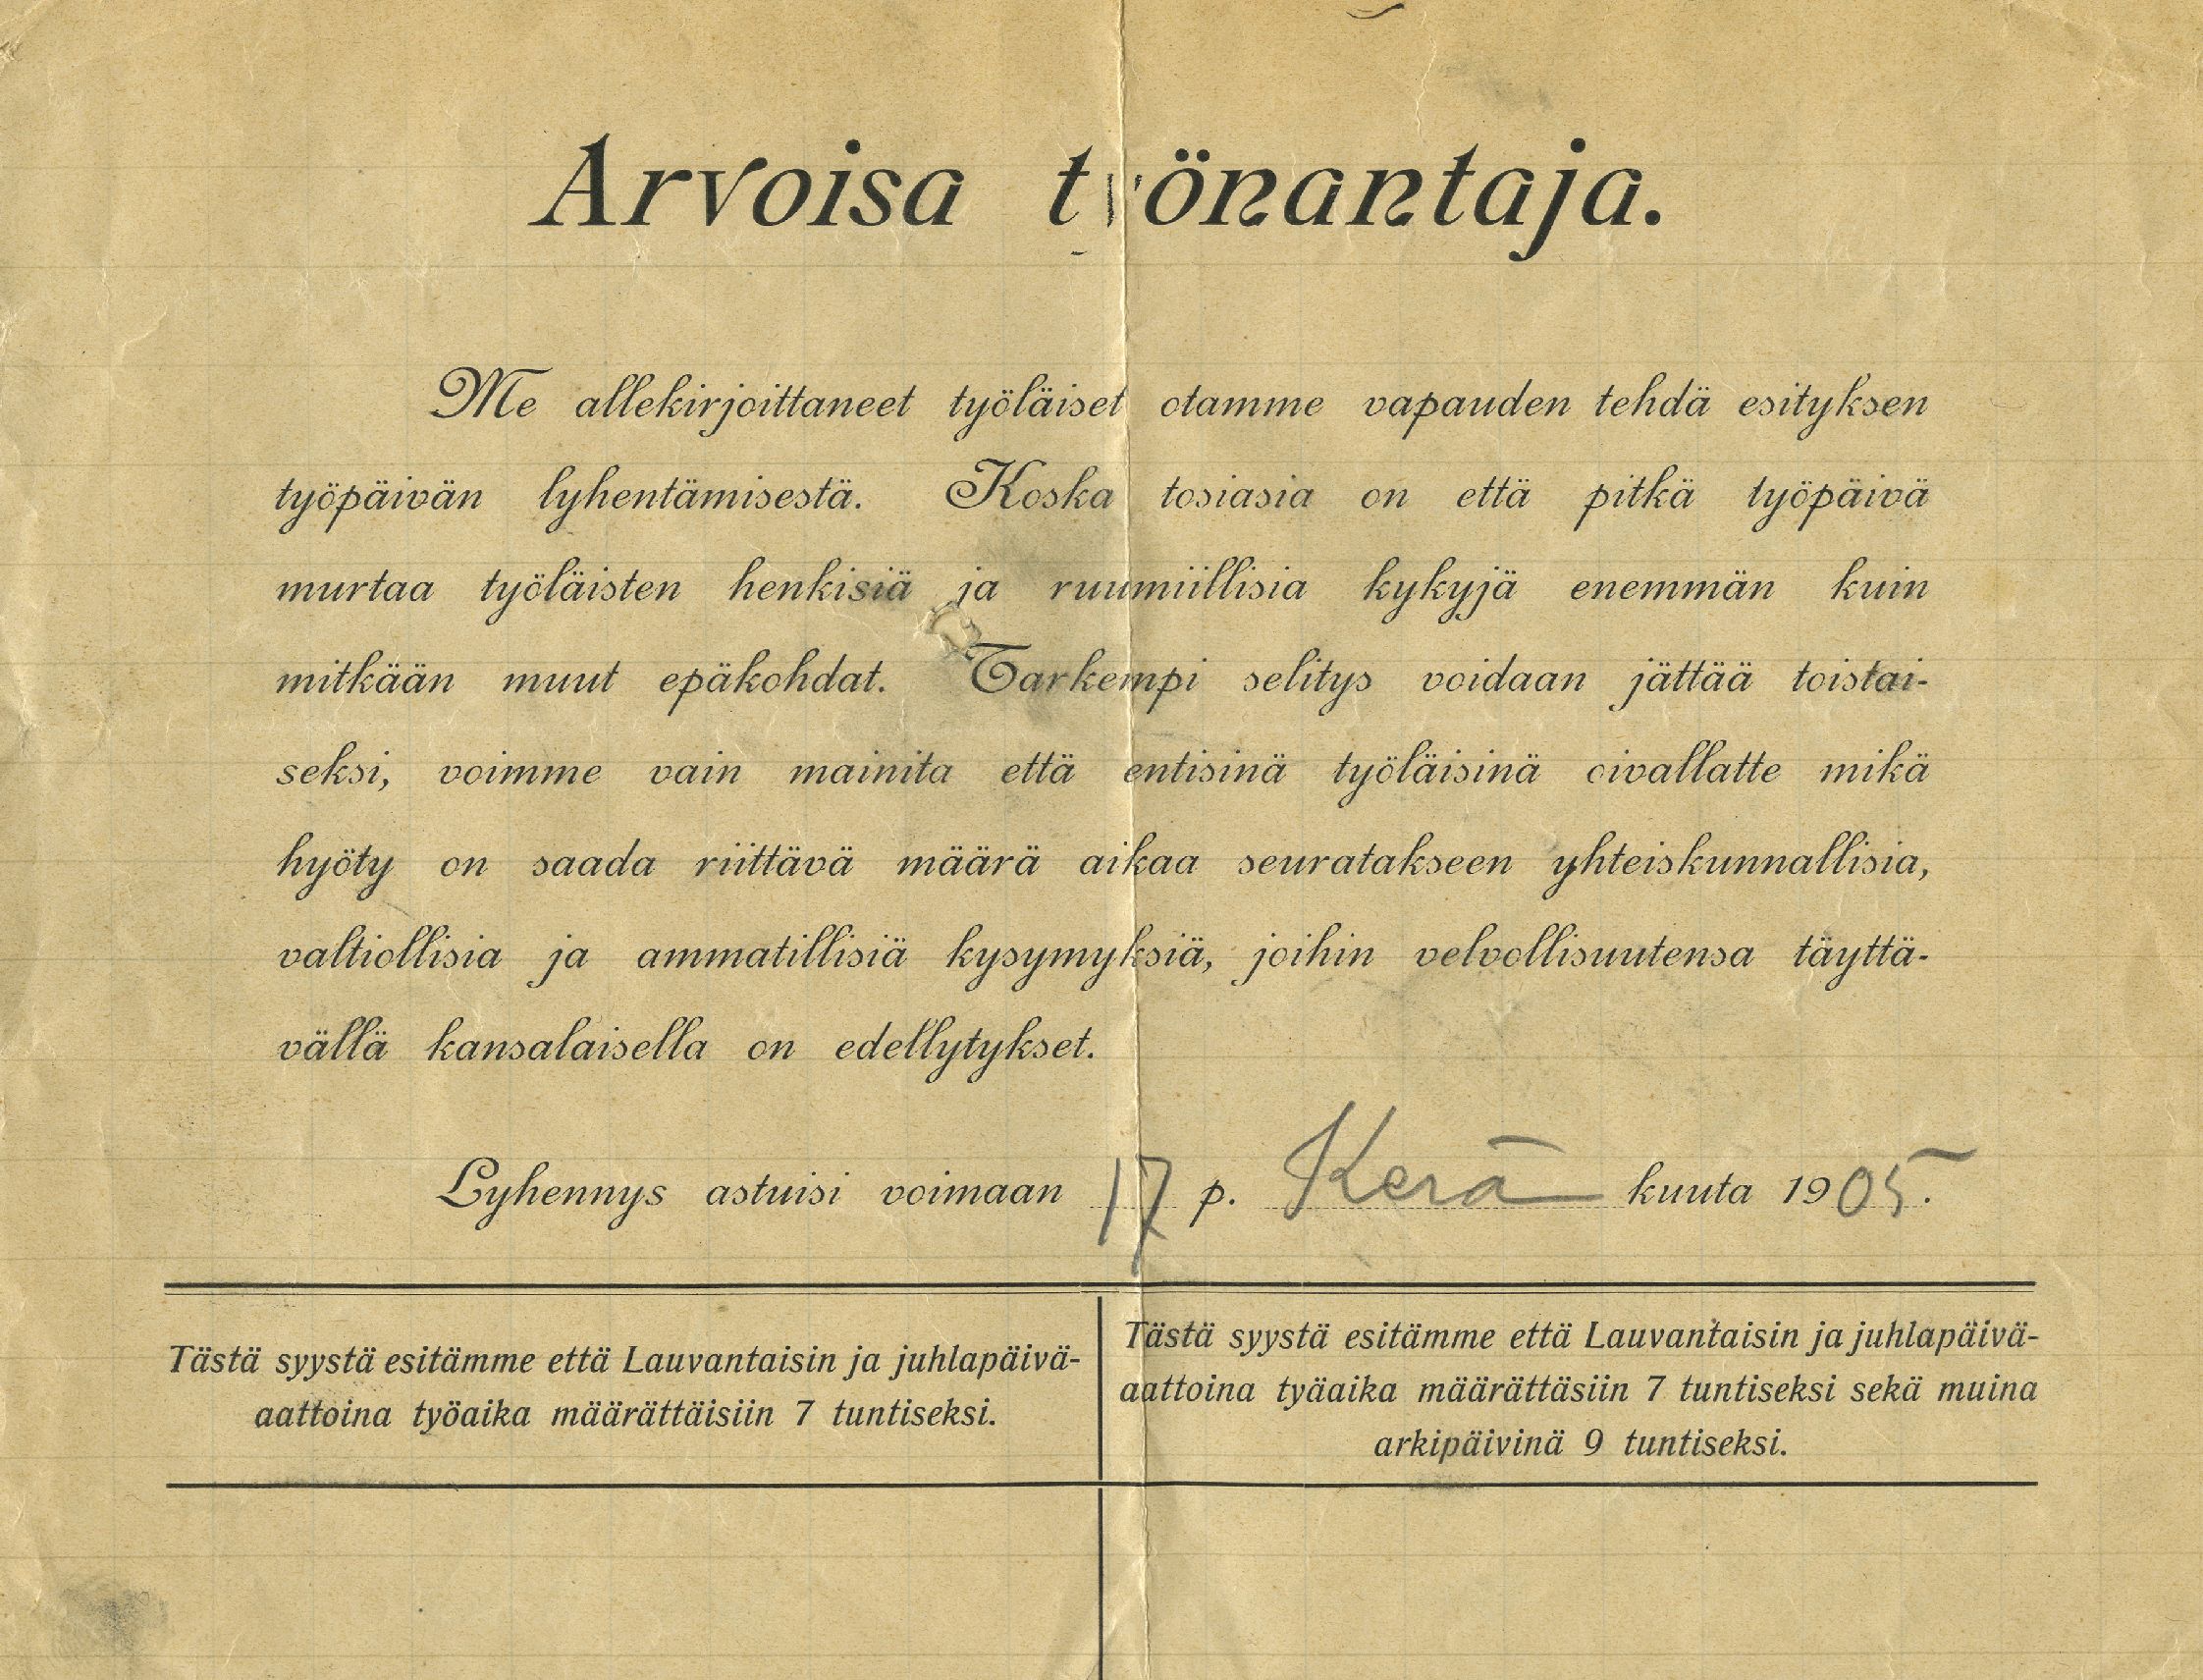 Arvoisa työnantaja.
Me allekirjoittaneet työläiset otamme vapauden tehdä esityksen
työpäivän lyhentämisestä. Koska tosiasia on että pitkä työpäivä
murtaa työläisten henkisiä ja ruumiillisia kykyjä enemmän kuin
mitkään muut epäkohdat. Tarkempi selitys voidaan jättää toistai-
seksi, voimme vain mainita että entisinä työläisinä oivallatte mikä
hyöty on saada riittävä määrä aikaa seuratakseen yhteiskunnallisia,
valtiollisia ja ammatillisiä kysymyksiä, joihin velvollisuutensa täyttä-
vällä kansalaisella on edellytykset.
Lyhennys astuisi voimaan 17 p. Kerä kuuta 1905.
Tästä syystä esitämme että Lauvantaisin ja juhlapäivä-
aattoina työaika määrättäisiin 7 tuntiseksi.
Tästä syystä esitämme että Lauvantaisin ja juhlapäivä-
aattoina tyäaika määrättäsiin 7 tuntiseksi sekä muina
arkipäivinä 9 tuntiseksi.